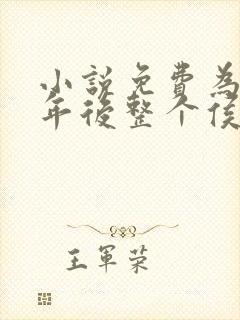 小說免費為
年後整个侯
王軍荣